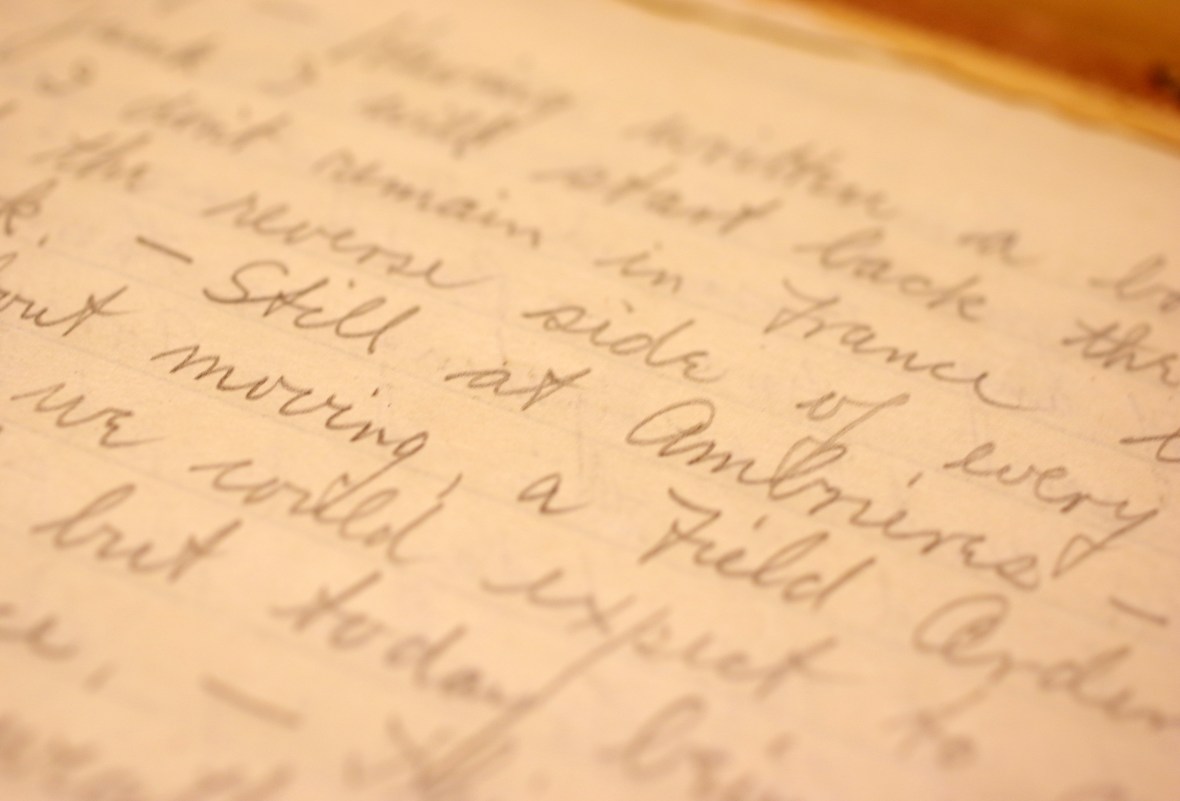 Having written a
I will start back the
I don't remain in France
the reverse side of every
k. — Still at Ambrieres —
out moving, a Field Order
we could expect to
but today